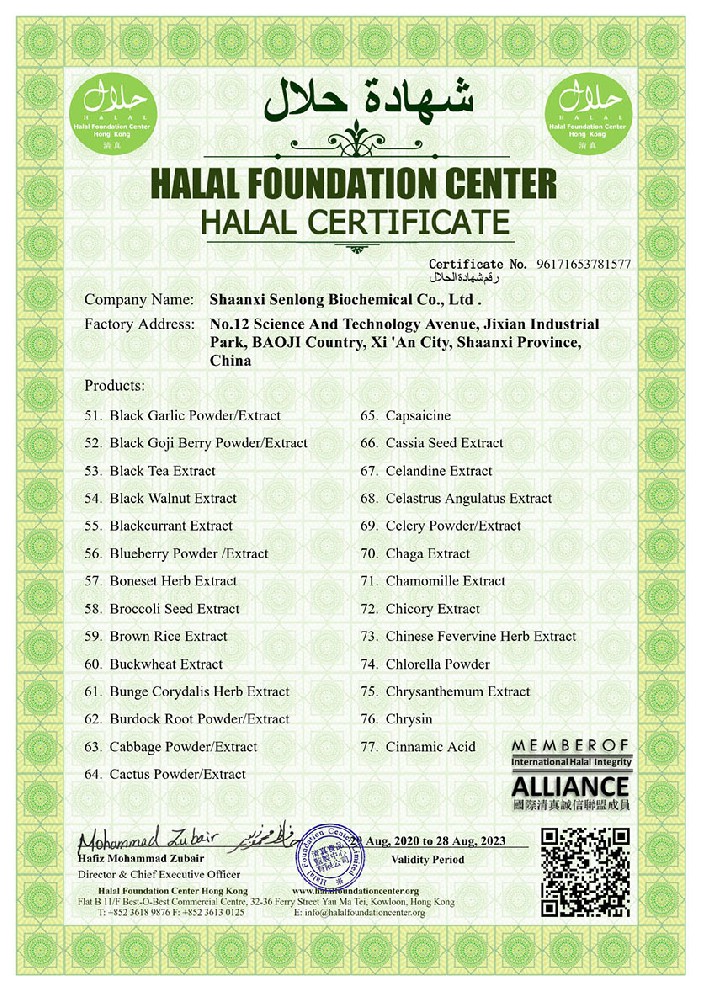 شهادة حلال
حلال
HALAL
Halal Foundation Center
Hong Kong
清真
حلال
HALAL
Halal Foundation Center
Hong Kong
清真
HALAL FOUNDATION CENTER
HALAL CERTIFICATE
Certificate No. 96171653781577
رقم شهادة الحلال
Company Name: Shaanxi Senlong Biochemical Co., Ltd .
Factory Address: No.12 Science And Technology Avenue, Jixian Industrial
Park, BAOJI Country, Xi 'An City, Shaanxi Province,
China
Products:
51. Black Garlic Powder/Extract
52. Black Goji Berry Powder/Extract
53. Black Tea Extract
54. Black Walnut Extract
55. Blackcurrant Extract
56. Blueberry Powder /Extract
57. Boneset Herb Extract
58. Broccoli Seed Extract
59. Brown Rice Extract
60. Buckwheat Extract
61. Bunge Corydalis Herb Extract
62. Burdock Root Powder/Extract
63. Cabbage Powder/Extract
64. Cactus Powder/Extract
65. Capsaicine
66. Cassia Seed Extract
67. Celandine Extract
68. Celastrus Angulatus Extract
69. Celery Powder/Extract
70. Chaga Extract
71. Chamomille Extract
72. Chicory Extract
73. Chinese Fevervine Herb Extract
74. Chlorella Powder
75. Chrysanthemum Extract
76. Chrysin
77. Cinnamic Acid
MEMBER OF
International Halal Integrity
ALLIANCE
國際清真誠信聯盟成員
Mohammad Zubair
Hafiz Mohammad Zubair
Director & Chief Executive Officer
Halal Foundation Center Limited
Aug, 2020 to 28 Aug, 2023
Validity Period
Halal Foundation Center Hong Kong www.halalfoundationcenter.org
Flat B 11/F Best-O-Best Commercial Centre, 32-36 Ferry Street Yau Ma Tei, Kowloon, Hong Kong
T: +852 3618 9876 F: +852 3613 0125 E: info@halalfoundationcenter.org